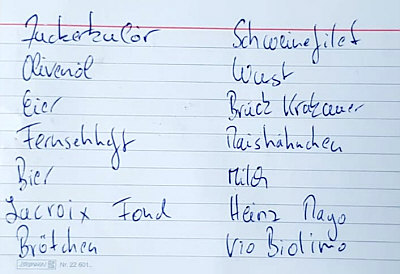 Zuckerkulör
Olivenöl
Eier
Fernsehheft
Bier
Lacroix Fond
Brötchen
Schweinefilet
Wurst
Brück Kratzauer
Maishähnchen
Milch
Heinz Mayo
Vio Biolimo
Nr. 22 601